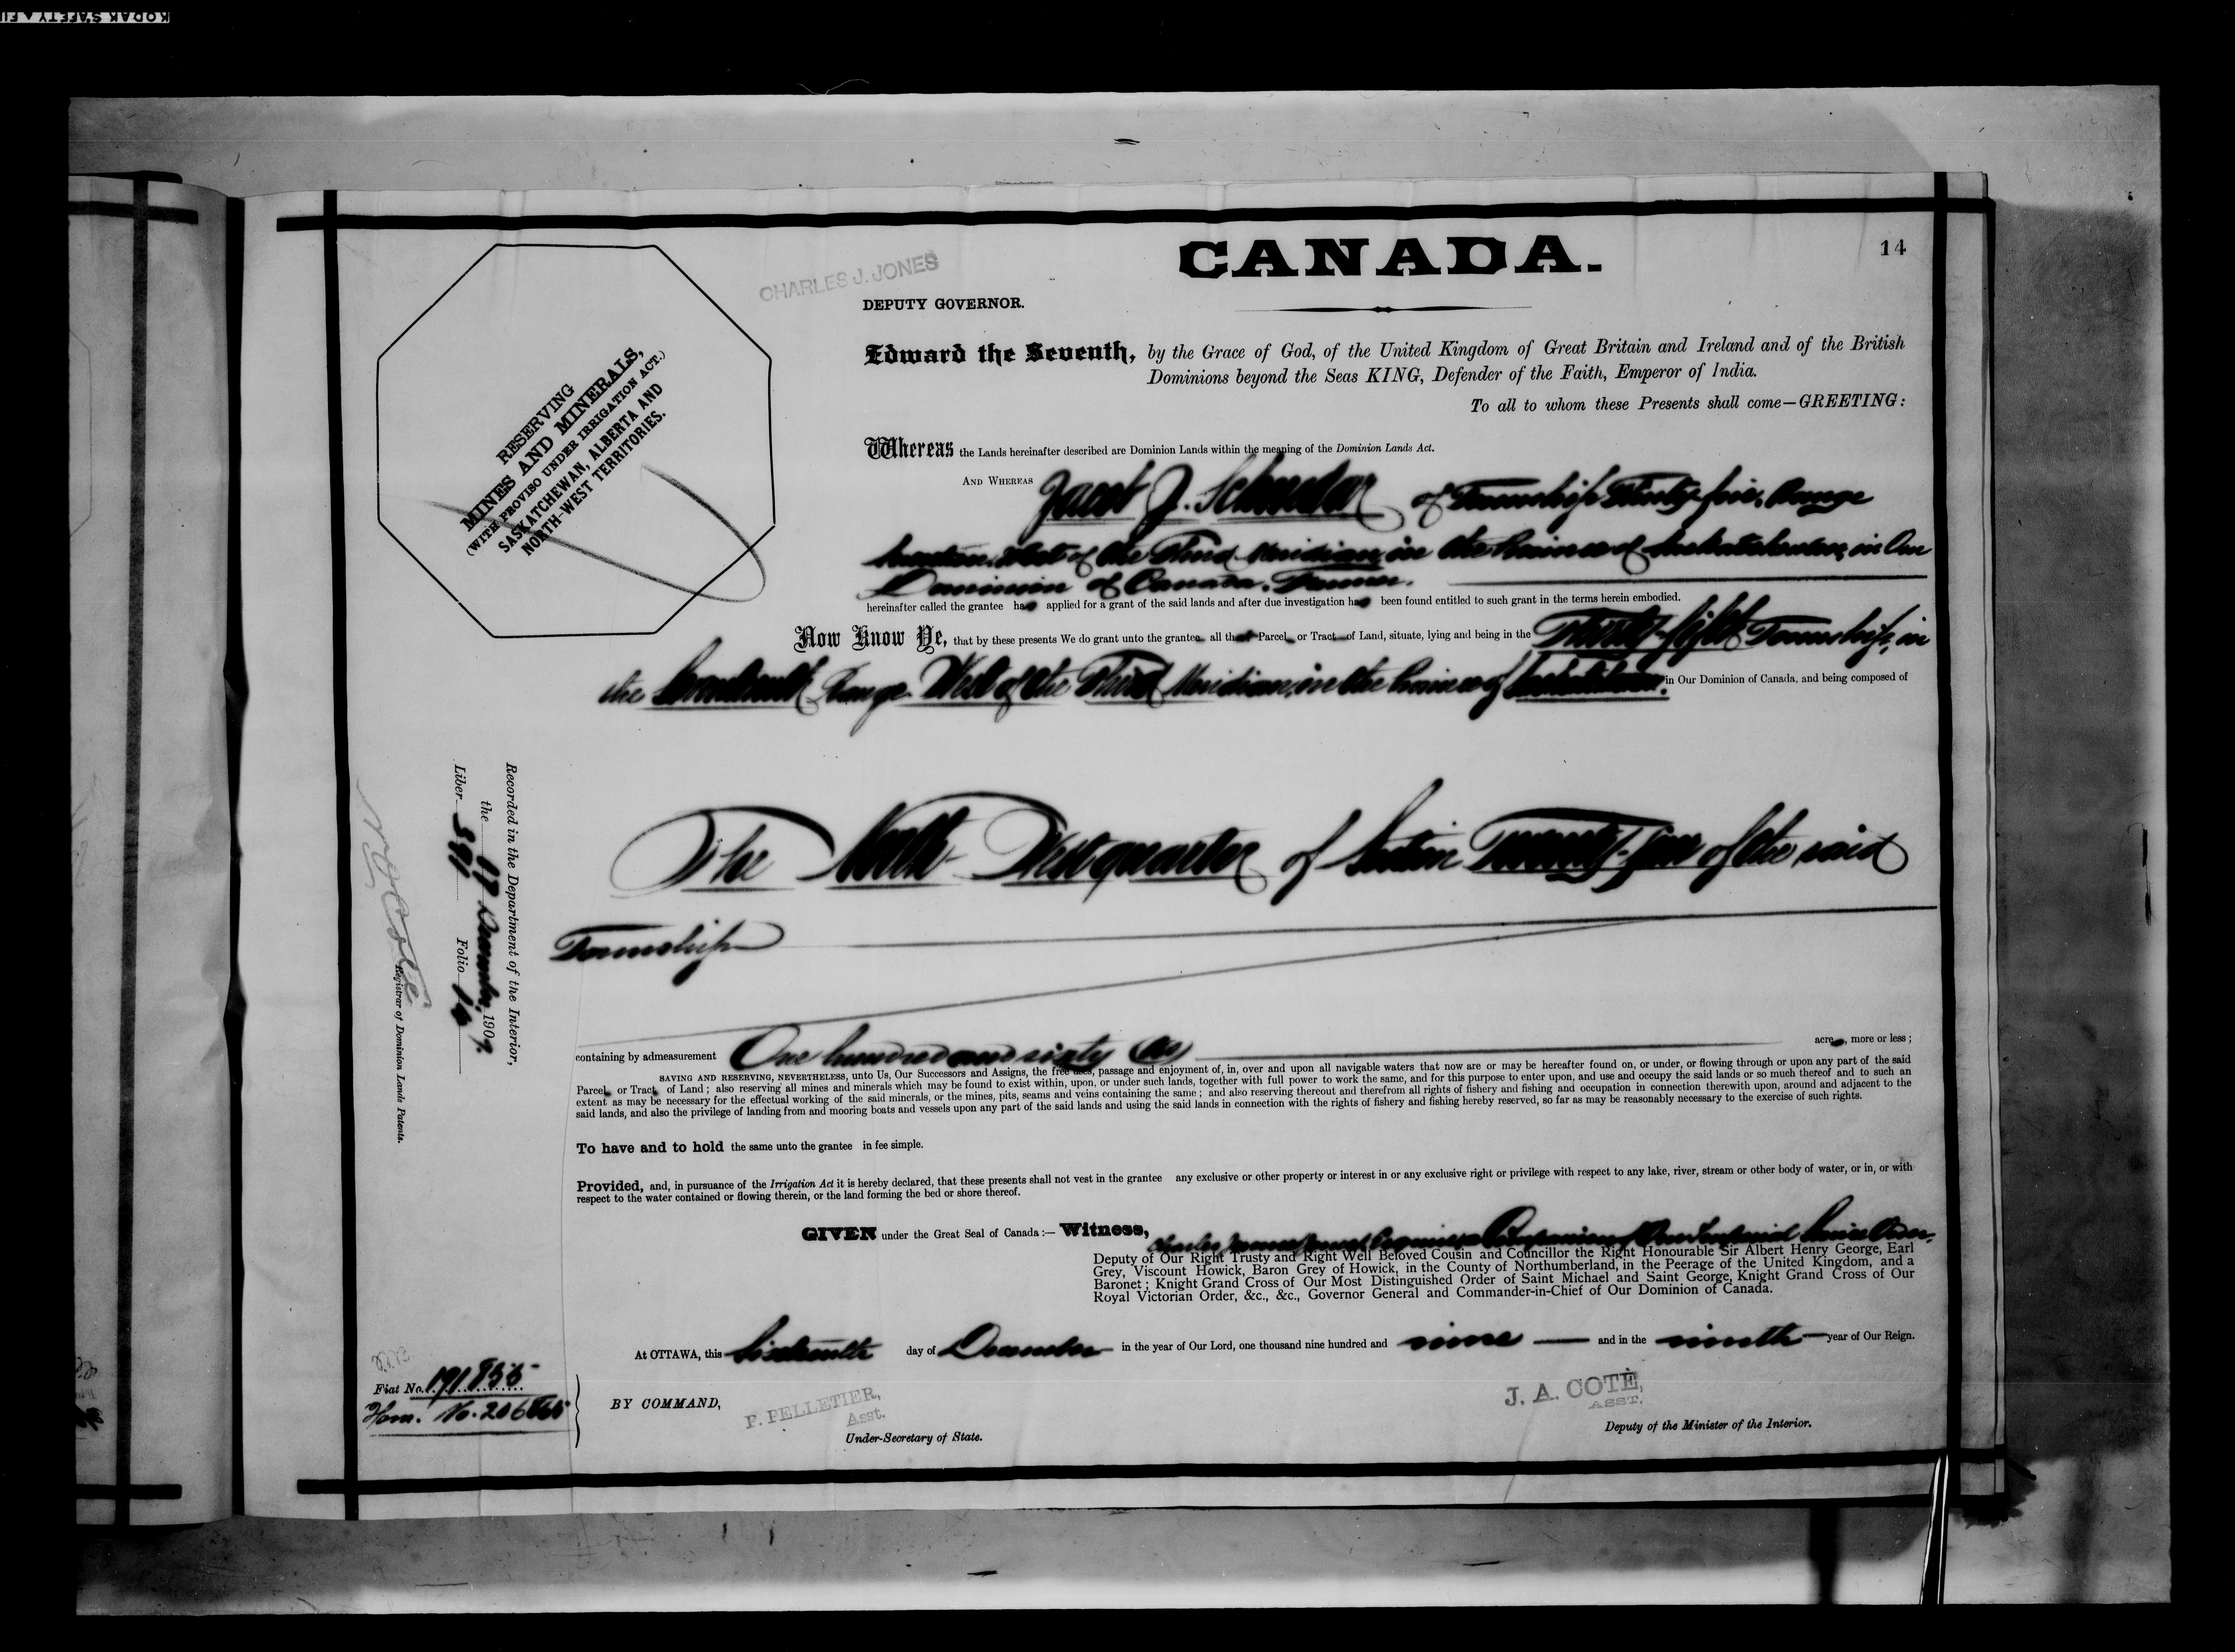 KODAK SAFETY
CANADA.
14
CHARLES J. JONES
DEPUTY GOVERNOR.
RESERVING
MINES AND MINERALS,
(WITH PROVISO UNDER IRRIGATION ACT.)
SASKATCHEWAN, ALBERTA AND
NORTH-WEST TERRITORIES.
Edward the Seventh, by the Grace of God, of the United Kingdom of Great Britain and Ireland and of the British
Dominions beyond the Seas KING, Defender of the Faith, Emperor of India.
To all to whom these Presents shall come—GREETING:
Whereas the Lands hereinafter described are Dominion Lands within the meaning of the Dominion Lands Act.
AND WHEREAS Jacob J. of Township Thirty-five, Range
West of the Third Meridian, in the Province of Saskatchewan, in Our
Dominion of Canada, Farmer.
hereinafter called the grantee has applied for a grant of the said lands and after due investigation has been found entitled to such grant in the terms herein embodied.
Now Know Ye, that by these presents We do grant unto the grantee all that Parcel or Tract of Land, situate, lying and being in the Thirty-fifth Township, in
the Seventeenth Range West of the Third Meridian, in the Province of Saskatchewan, in Our Dominion of Canada, and being composed of
The North West quarter of Section of the said
Township
Recorded in the Department of the Interior,
the 17 December, 1909.
Liber 391 Folio 14
Registrar of Dominion Lands Patents.
containing by admeasurement One hundred and sixty acres, more or less;
SAVING AND RESERVING, NEVERTHELESS, unto Us, Our Successors and Assigns, the free uses, passage and enjoyment of, in, over and upon all navigable waters that now are or may be hereafter found on, or under, or flowing through or upon any part of the said
Parcel or Tract of Land; also reserving all mines and minerals which may be found to exist within, upon, or under such lands, together with full power to work the same, and for this purpose to enter upon, and use and occupy the said lands or so much thereof and to such an
extent as may be necessary for the effectual working of the said minerals, or the mines, pits, seams and veins containing the same; and also reserving thereout and therefrom all rights of fishery and fishing and occupation in connection therewith upon, around and adjacent to the
said lands, and also the privilege of landing from and mooring boats and vessels upon any part of the said lands and using the said lands in connection with the rights of fishery and fishing hereby reserved, so far as may be reasonably necessary to the exercise of such rights.
To have and to hold the same unto the grantee in fee simple.
Provided, and, in pursuance of the Irrigation Act it is hereby declared, that these presents shall not vest in the grantee any exclusive or other property or interest in or any exclusive right or privilege with respect to any lake, river, stream or other body of water, or in, or with
respect to the water contained or flowing therein, or the land forming the bed or shore thereof.
GIVEN under the Great Seal of Canada:— Witness, Charles James Jones, Esquire, Companion of Our Imperial Service Order,
Deputy of Our Right Trusty and Right Well Beloved Cousin and Councillor the Right Honourable Sir Albert Henry George, Earl
Grey, Viscount Howick, Baron Grey of Howick, in the County of Northumberland, in the Peerage of the United Kingdom, and a
Baronet; Knight Grand Cross of Our Most Distinguished Order of Saint Michael and Saint George, Knight Grand Cross of Our
Royal Victorian Order, &c., &c., Governor General and Commander-in-Chief of Our Dominion of Canada.
At OTTAWA, this Sixteenth day of December in the year of Our Lord, one thousand nine hundred and nine and in the ninth year of Our Reign.
Fiat No. 191855
Hom. No.
BY COMMAND,
P. PELLETIER,
Asst.
Under-Secretary of State.
J. A. COTÉ,
ASST.
Deputy of the Minister of the Interior.